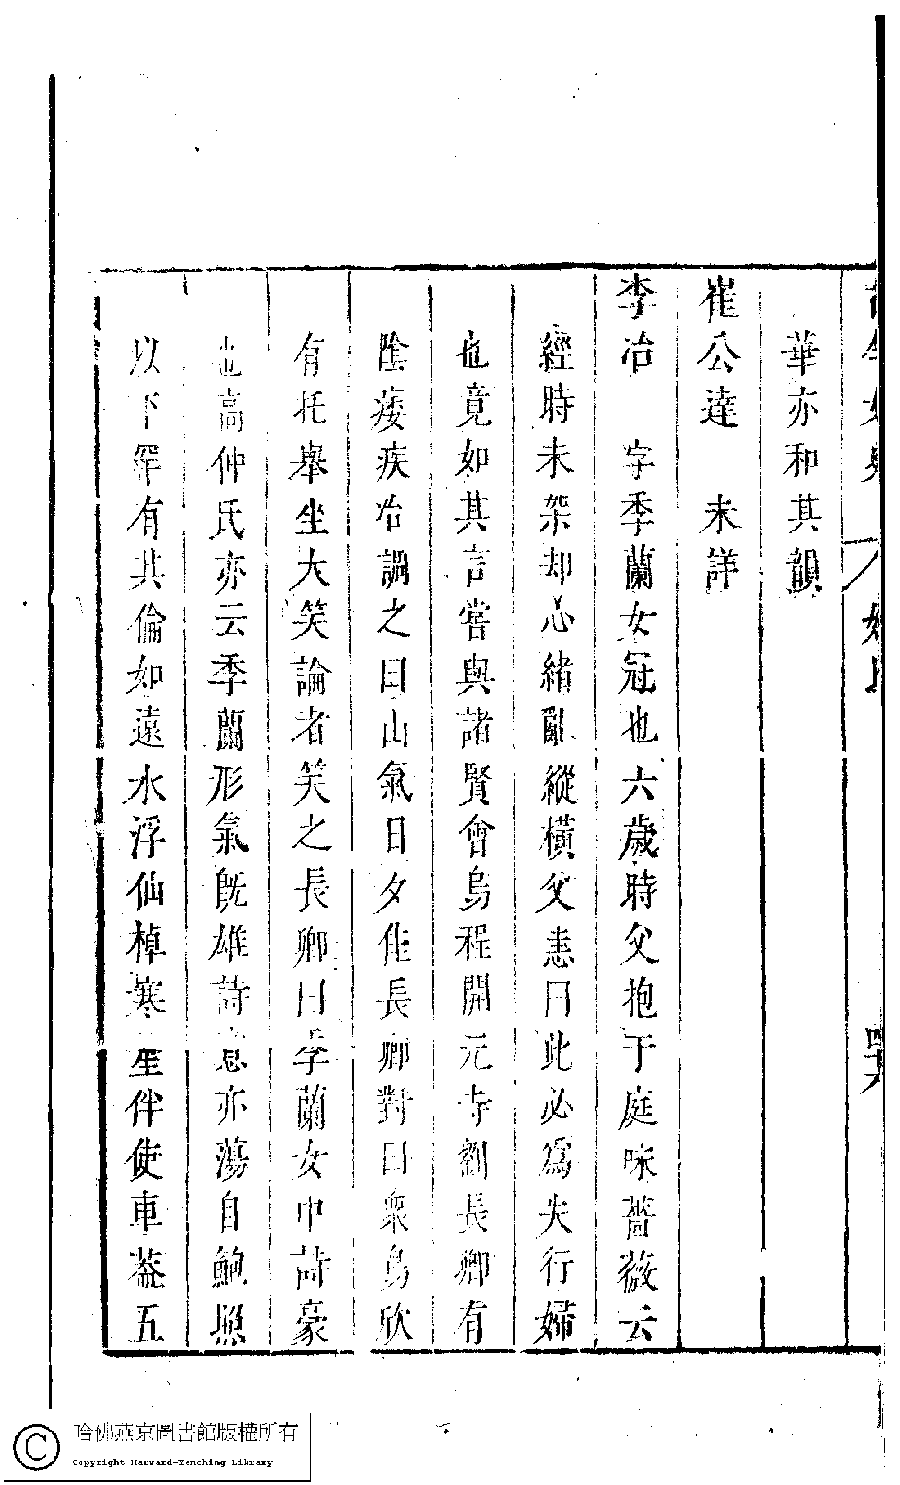 華亦和其韻
崔公達 未詳
李冶 字季蘭女冠也六歲時父抱于庭咏薔薇云
經時未架却心緒亂縱橫父恚曰此必為失行婦
也竟如其言嘗與諸賢會烏程開元寺劉長卿有
陰痿疾冶謂之曰山氣日夕佳長卿對曰衆鳥欣
有托舉坐大笑論者笑之長卿曰季蘭女中詩豪
也高仲氏亦云季蘭形氣旣雄詩意亦蕩自鮑照
以下罕有其倫如遠水浮仙棹寒星伴使車葢五
哈佛燕京圖書館版權所有
Copyright Harvard-Yenching Library